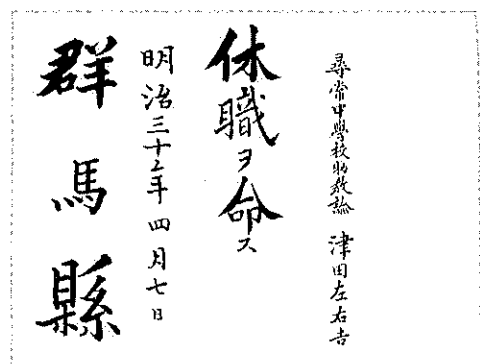 尋常中學校助教諭 津田左右吉
休職ヲ命ス
明治三十二年四月七日
群馬縣